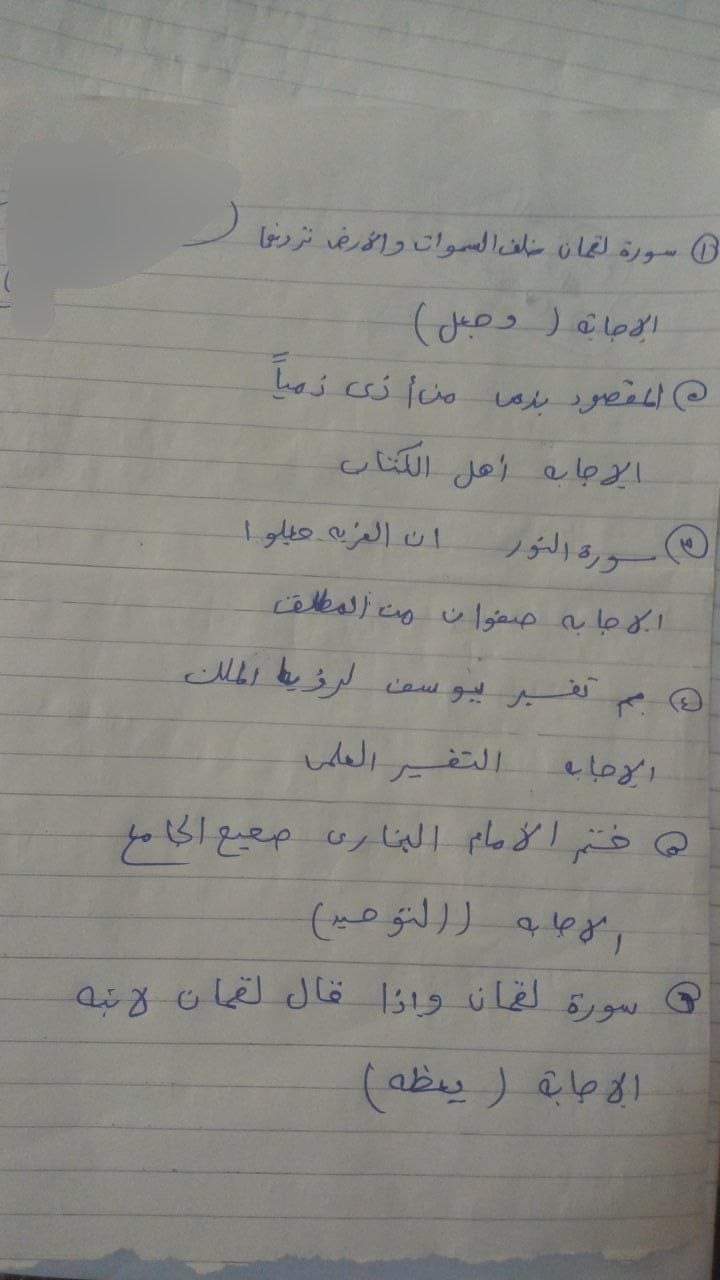 ① سورة لقمان خلف السموات والأرض ترونها (
الاجابة ( وجبل )
② المقصود بذمى من أذى ذمياً
الاجابه أهل الكتاب
③ سورة النور ان الذيه حبلوا
الاجابه صفوان من المطلق
④ بم تفسير يوسف لرؤيا الملك
الاجابه التفسير العلمى
⑤ ختم الأمام البخارى صحيح الجامع
الاجابه ((التوحيد)
⑥ سورة لقمان وإذا قال لقمان لابنه
الاجابة ( يعظه )